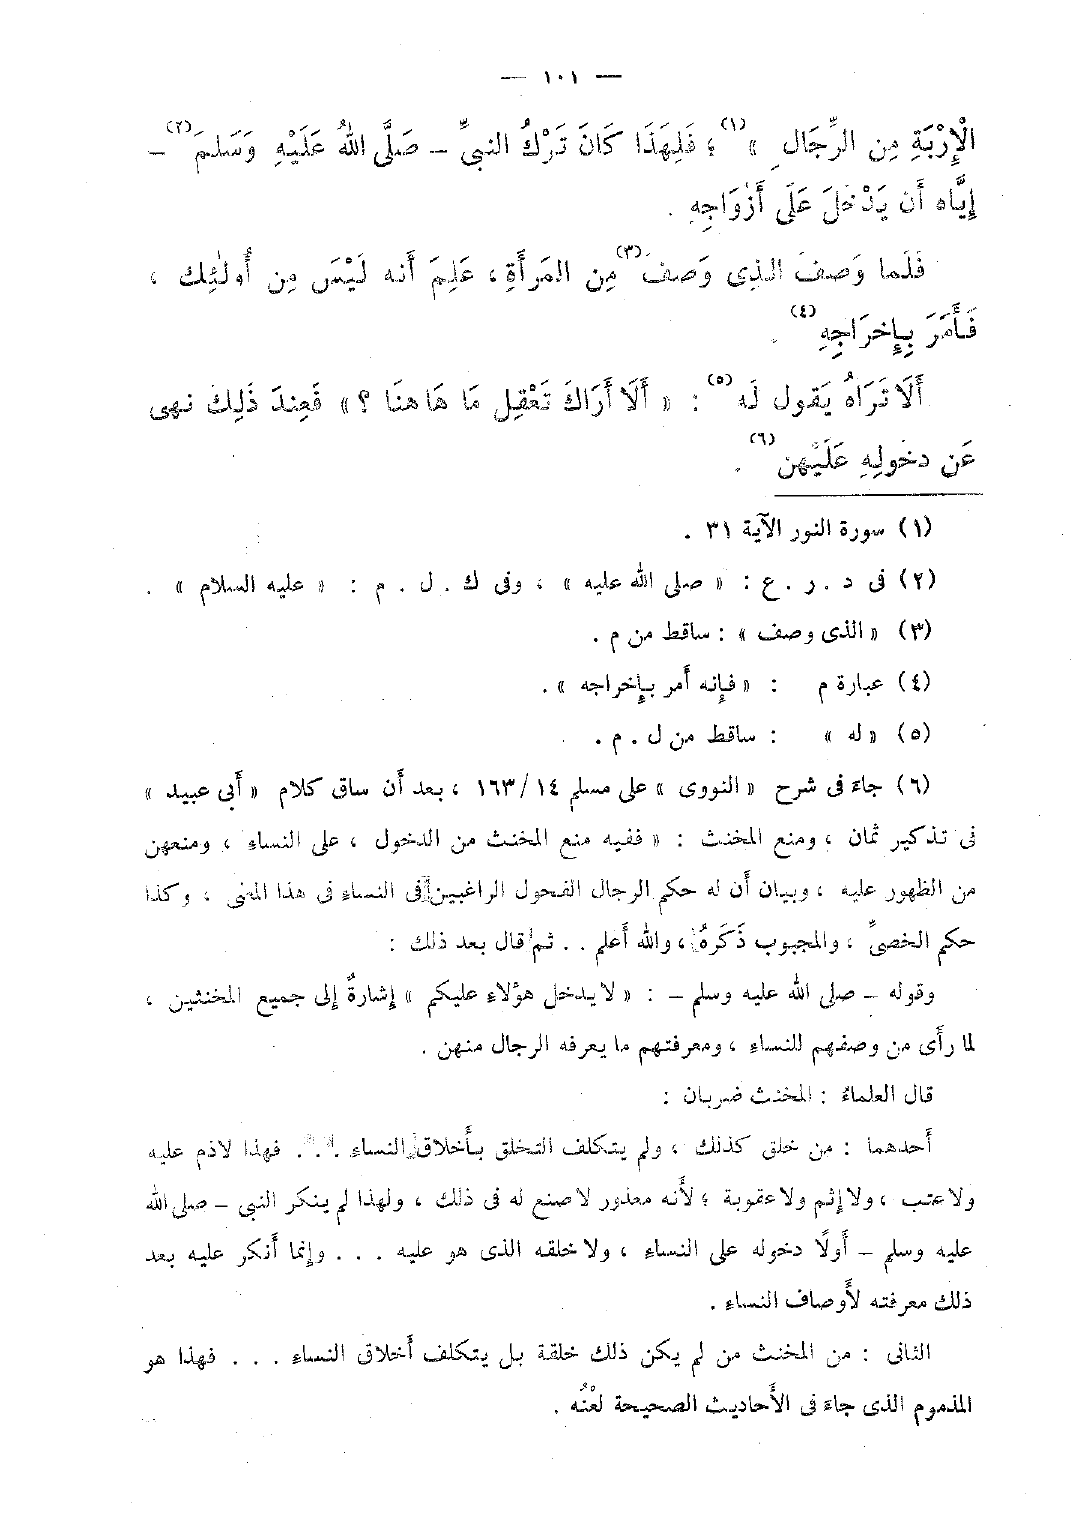 — ١٠١ —
الْإِرْبَةِ مِن الرِّجَالِ »(١) ؛ فَلِهَذَا كَانَ تَرْكُ النبىِّ – صَلَّى اللهُ عَلَيْهِ وَسَلمَ(٢) –
إِيَّاه أَن يَدْخُلَ عَلَى أَزْوَاجِهِ .
فَلَما وَصفَ الذِى وَصفَ(٣) مِن المَرأَةِ ، عَلِمَ أَنه لَيْسَ مِن أُولَئِك ،
فَأَمَرَ بِإِخرَاجِهِ(٤) .
أَلَا تَرَاهُ يَقول لَه(٥) : « أَلَا أَرَاكَ تَعْقِل مَا هَاهنَا ؟ » فَعِندَ ذَلِكَ نهى
عَن دخولِهِ عَلَيْهن(٦) .
(١) سورة النور الآية ٣١ .
(٢) فى د . ر . ع : « صلى الله عليه » ، وفى ك . ل . م : « عليه السلام » .
(٣) « الذى وصف » : ساقط من م .
(٤) عبارة م : « فإنه أمر بإخراجه » .
(٥) « له » : ساقط من ل . م .
(٦) جاء فى شرح « النووى » على مسلم ١٤/ ١٦٣ ، بعد أن ساق كلام « أبى عبيد »
فى تذكير ثمان ، ومنع المخنث : « ففيه منع المخنث من الدخول ، على النساء ، ومنعهن
من الظهور عليه ، وبيان أن له حكم الرجال الفحول الراغبين فى النساء فى هذا المعنى ، وكذا
حكم الخصىِّ ، والمجبوب ذَكَرهُ ، والله أعلم . . ثم قال بعد ذلك :
وقوله – صلى الله عليه وسلم – : « لا يدخل هؤلاء عليكم » إشارةٌ إلى جميع المخنثين ،
لما رأى من وصفهم للنساء ، ومعرفتهم ما يعرفه الرجال منهن .
قال العلماءُ : المخنث ضربان :
أحدهما : من خلق كذلك ، ولم يتكلف التخلق بأخلاق النساء . . . فهذا لاذم عليه
ولا عتب ، ولا إثم ولا عقوبة ؛ لأنه معذور لا صنع له فى ذلك ، ولهذا لم ينكر النبى – صلى الله
عليه وسلم – أولًا دخوله على النساء ، ولا خلقه الذى هو عليه . . . وإنما أنكر عليه بعد
ذلك معرفته لأوصاف النساء .
الثانى : من المخنث من لم يكن ذلك خلقة بل يتكلف أخلاق النساء . . . فهذا هو
المذموم الذى جاء فى الأحاديث الصحيحة لعْنُه .